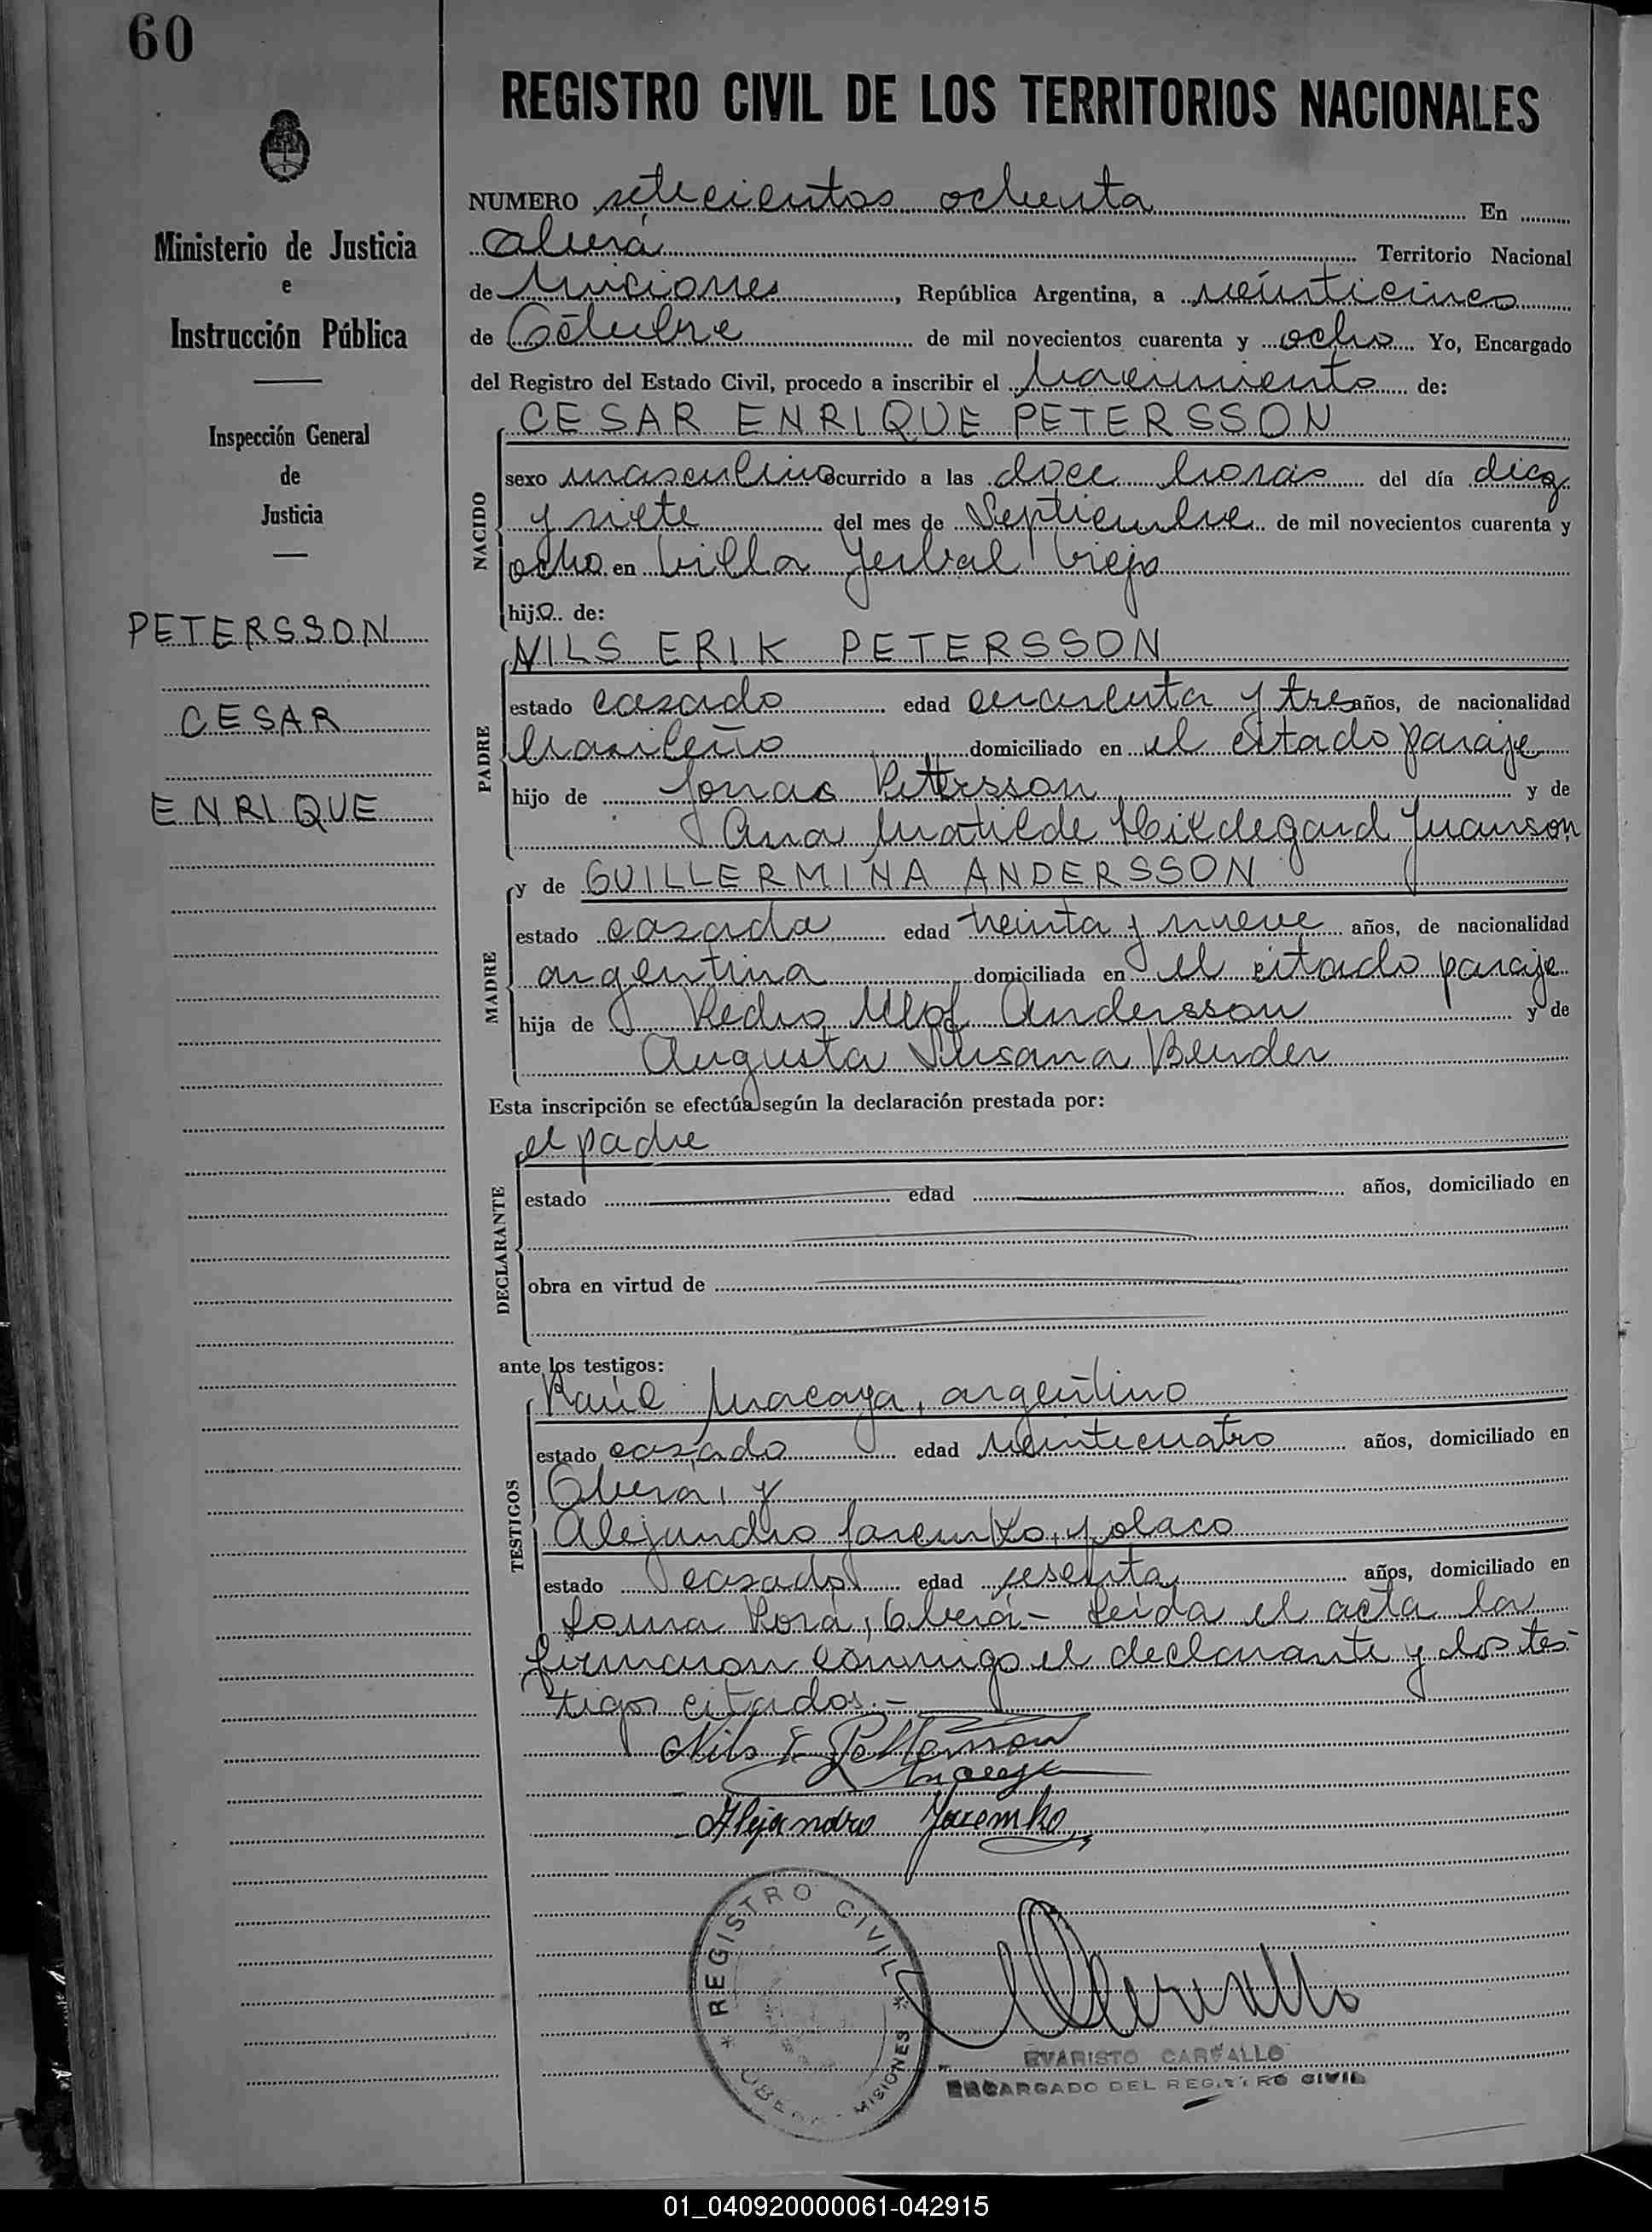 60
Ministerio de Justicia
e
Instrucción Pública
Inspección General
de
Justicia
PETERSSON
CESAR
ENRIQUE
REGISTRO CIVIL DE LOS TERRITORIOS NACIONALES
NUMERO setecientos ochenta En
Oberá Territorio Nacional
de Misiones, República Argentina, a veinticinco
de Octubre de mil novecientos cuarenta y ocho Yo, Encargado
del Registro del Estado Civil, procedo a inscribir el Nacimiento de:
CESAR ENRIQUE PETERSSON
NACIDO
sexo masculino ocurrido a las doce horas del día diez
y siete del mes de Septiembre de mil novecientos cuarenta y
ocho en Villa Yerbal Viejo
hijo de:
NILS ERIK PETERSSON
PADRE
estado casado edad cuarenta y tres años, de nacionalidad
brasileño domiciliado en el citado paraje
hijo de Jonas Pettersson y de
Ana Matilde Hildegard Juanson
y de GUILLERMINA ANDERSSON
MADRE
estado casada edad treinta y nueve años, de nacionalidad
argentina domiciliada en el citado paraje
hija de Pedro Ulof Andersson y de
Augusta Susana Bender
Esta inscripción se efectúa según la declaración prestada por:
el padre
DECLARANTE
estado edad años, domiciliado en
obra en virtud de
ante los testigos:
Raúl Macaya, argentino
TESTIGOS
estado casado edad veinticuatro años, domiciliado en
Oberá, y
Alejandro Jaremko, polaco
estado casado edad sesenta años, domiciliado en
Loma Porá, Oberá- Leida el acta la
firmaron conmigo el declarante y los tes-
tigos citados.-
Nils E Pettersson
Macaya
Alejandro Jaremko
REGISTRO CIVIL
OBERA - MISIONES
EVARISTO CARVALLO
ENCARGADO DEL REGISTRO CIVIL
01_040920000061-042915